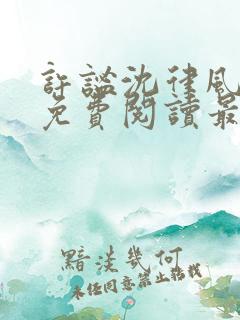 許謐沈律風
免費閱讀最
黯淡幾何
未经同意禁止转载